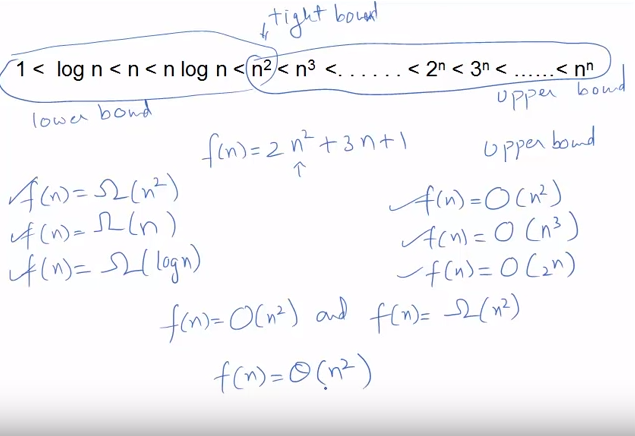 tight bound
1 < log n < n < n log n < n² < n³ < . . . . . . < 2ⁿ < 3ⁿ < ...... < nⁿ
lower bond upper bond
f(n) = 2n² + 3n + 1
↑
upper bond
f(n) = Ω(n²) f(n) = O(n²)
f(n) = Ω(n) f(n) = O(n³)
f(n) = Ω(log n) f(n) = O(2n)
f(n) = O(n²) and f(n) = Ω(n²)
f(n) = Θ(n²)